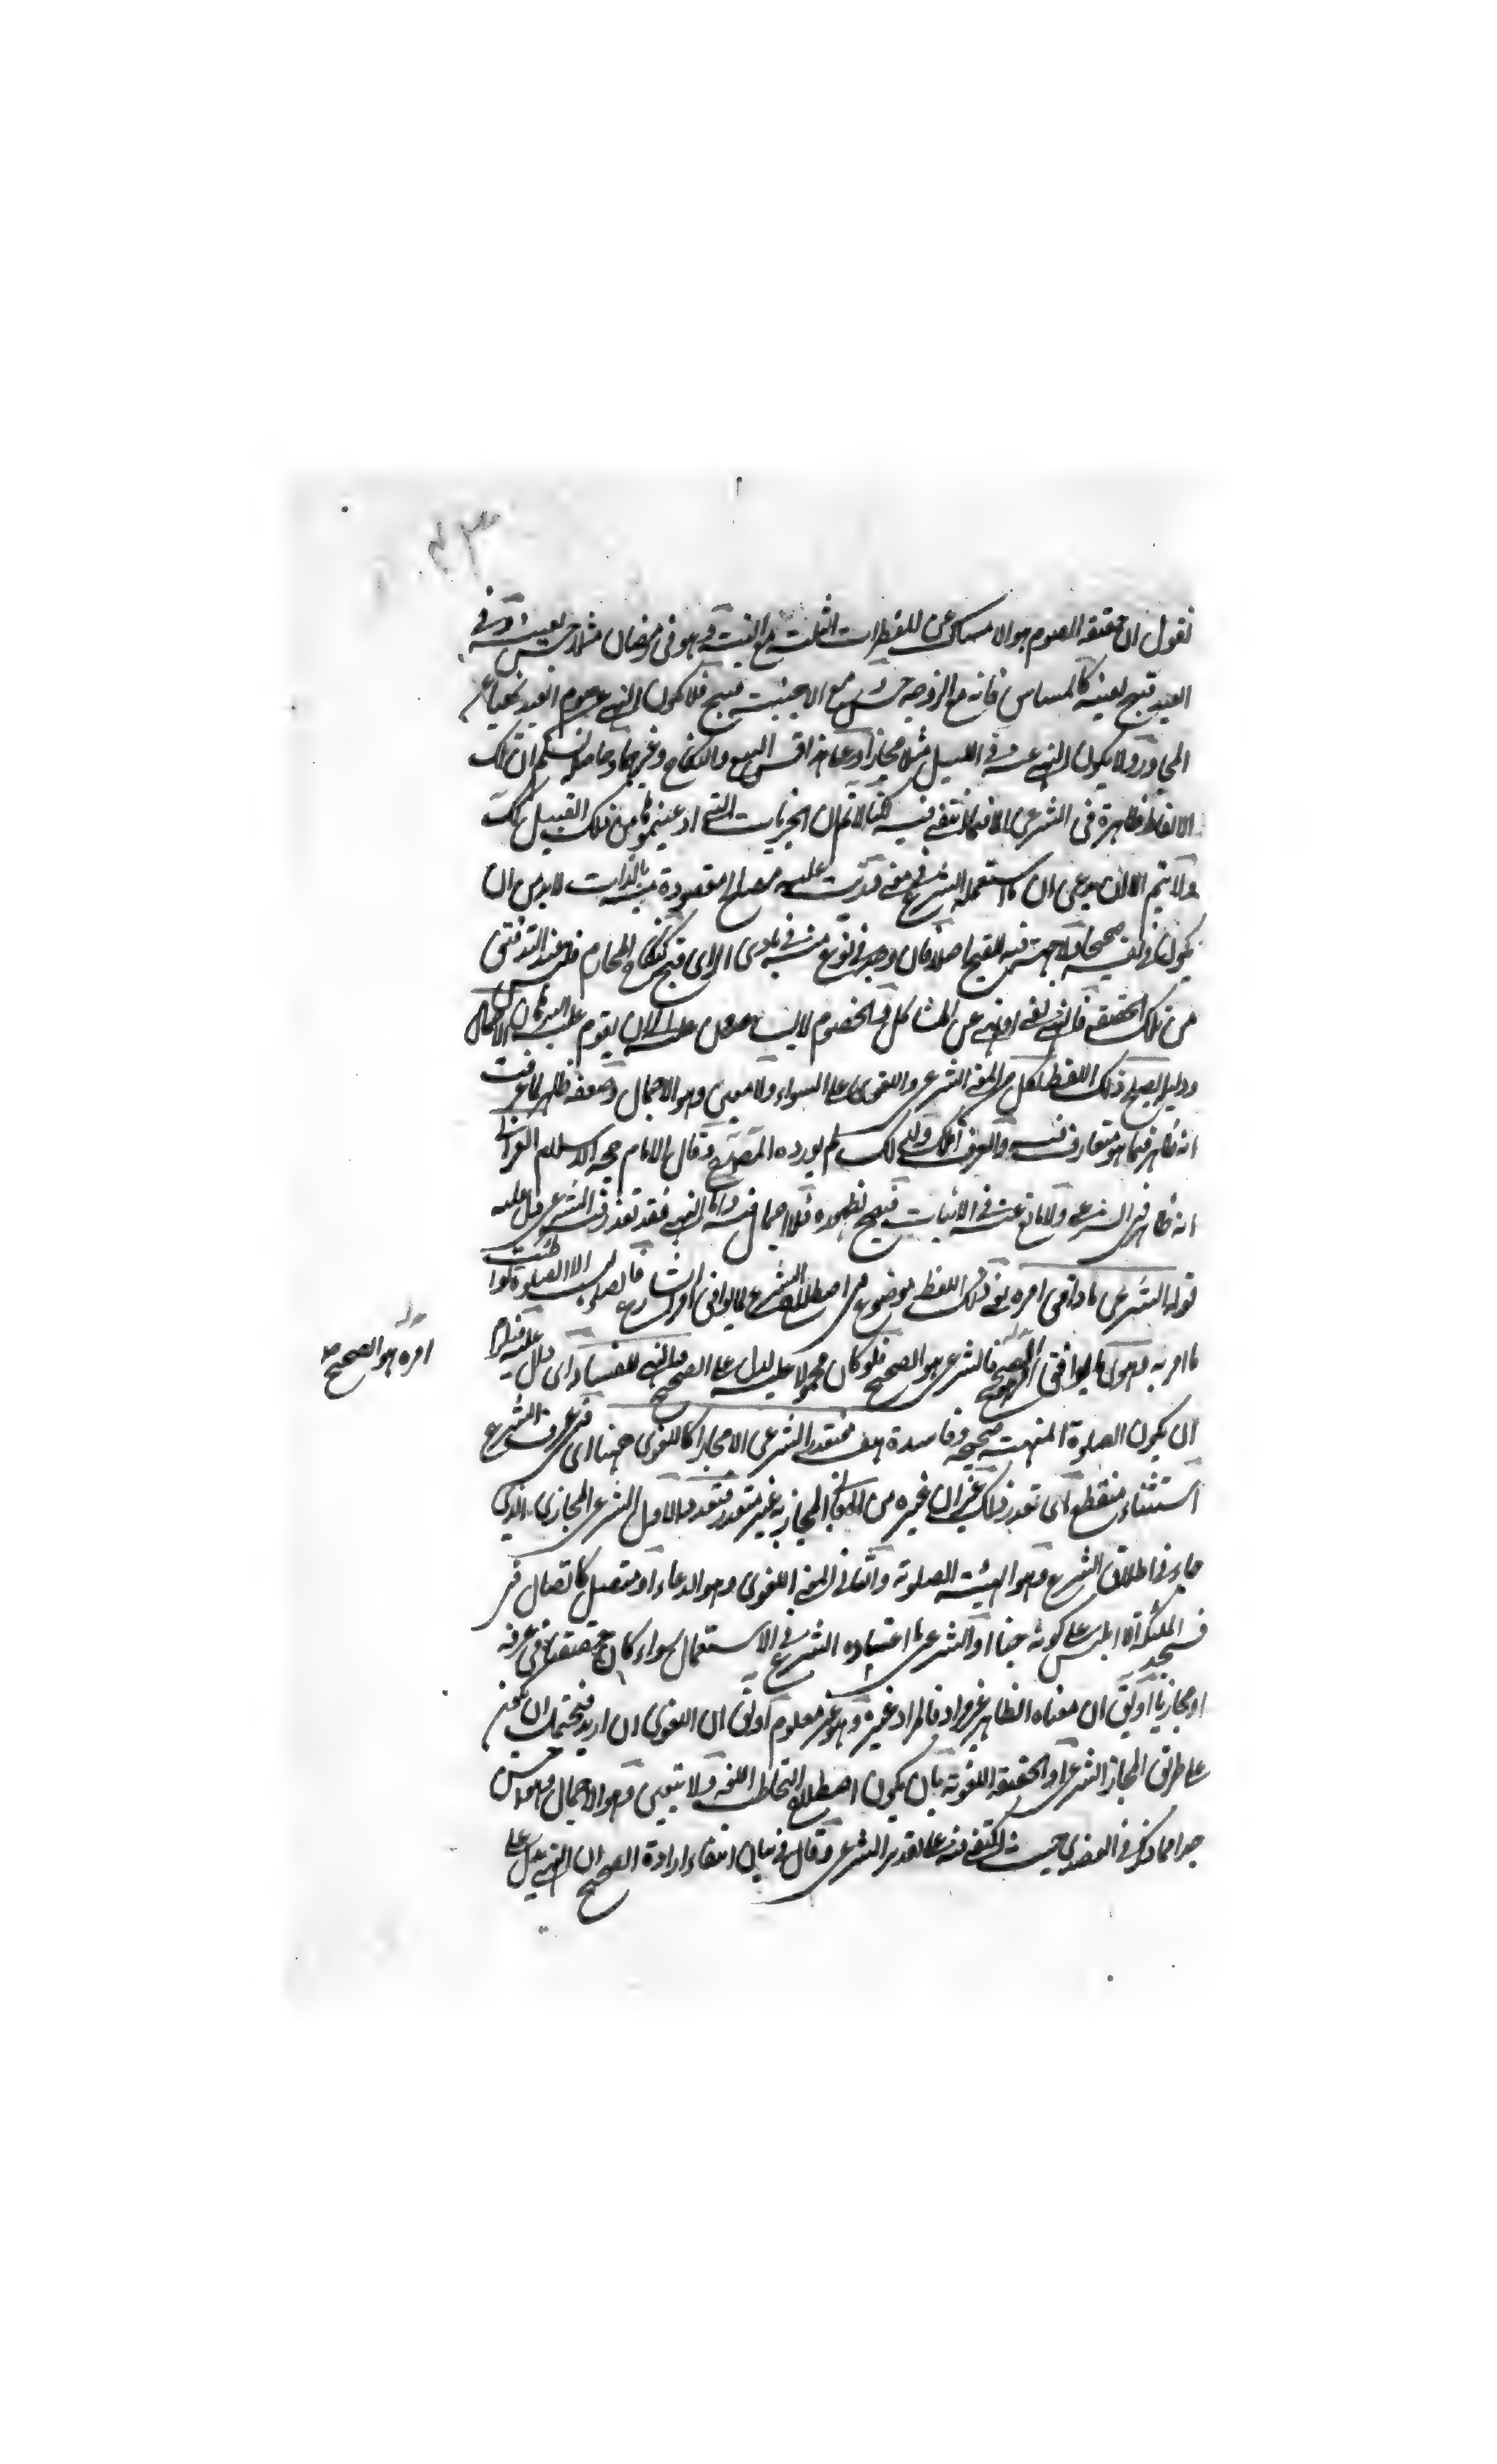 نقول ان حقيقة الصوم هو الامساك عن المفطرات الثلث مع النية وهو في رمضان مثلا حسن لعينه وفي
العيد قبيح لعينه كالمساس فانه مع الزوجة حسن ومع الاجنبية قبيح فلا يكون النهي عن صوم العيد نهيا عن
المجاور ولا يكون النهي عنه في الليل مثلا مجازا وعلى هذا قس البيع والنكاح وغيرهما وحاصله نسلم ان تلك
الالفاظ ظاهرة في الشرعي الا فيما ينتفي فيه لكنا لانم ان الجزئيات التي ادعيتموها من ذلك القبيل كك
ولا يتم الا لمن يدعي ان ما استعمله الشرع في معنى قد رتب عليه مصالح مقصودة منه بالذات لابد من ان
يكون في نفسه صحيحا ولا جهة فيه للقبح اصلا فان وجد في نوع منه في بادي الراي قبح كنكاح المحارم فهو عند التدقيق ليس
من تلك الحقيقة فالنهي نفي او نهي عن المشاكل فالخصوم لا يساعدون عليه الى ان يقوم عليه البرهان الاجمال
ودليله يصلح ذلك اللفظ لكل من المعنى الشرعي واللغوي على السواء ولا معين وهو الاجمال وضعفه ظاهر لما عرفت
انه ظاهر فيما هو متعارف فيه والعرف لذلك ولذلك لم يورده المصنف وقال الامام حجة الاسلام الغزالي
انه ظاهر في الشرعي ولا مانع عنه في الاثبات فيصح ظهوره فلا اجمال فيه واما النهي فقد تعذر فيه الشرعي قيل عليه
قوله الشرعي ما وافق امره يعني ذلك اللفظ موضوع في اصطلاح الشرع لما يوافق امر الشارع فالصلوة ليست الا الصلوة كما
ما امر به وهو ما يوافق الصحيح فالشرعي هو الصحيح فلو كان محمولا عليه لدل على الصحيح والنهي للفساد اي دال عليه فيلزم
امره هو الصحيح صح
ان يكون الصلوة المنهية صحيحة وفاسدة هف فتعذر الشرعي الا مجازا كاللغوي ههنا اي في عرف الشرع
استثناء منقطع اي تعذر ذلك غير ان غيره من المعاني المجازية غير متعذر فتعدد الاول الشرعي المجازي الذي
جاء في اطلاق الشرع وهو الهيئة الصلوتية والثاني المعنى اللغوي وهو الدعاء او متصل كاتصال في
فسجد الملئكة الا ابليس على كونه جنا او الشرعي ما اعتاده الشرع في الاستعمال سواء كان حقيقيا في عرفه
او مجازيا او يق ان معناه الظاهر غير مراد فالمراد غيره وهو غير معلوم او يق ان اللغوي ان اريد فيحتمل ان يكون
على طريق المجاز الشرعي او الحقيقة اللغوية بان يكون اصطلاح التخاطب اللغة ولا يتعين وهو الاجمال وهو احسن
جدا مما ذكر في العضدي حيث اكتفى فيه على تعذر الشرعي وقال في بيان انتفاء ارادة الصحيح ان النهي يدل على